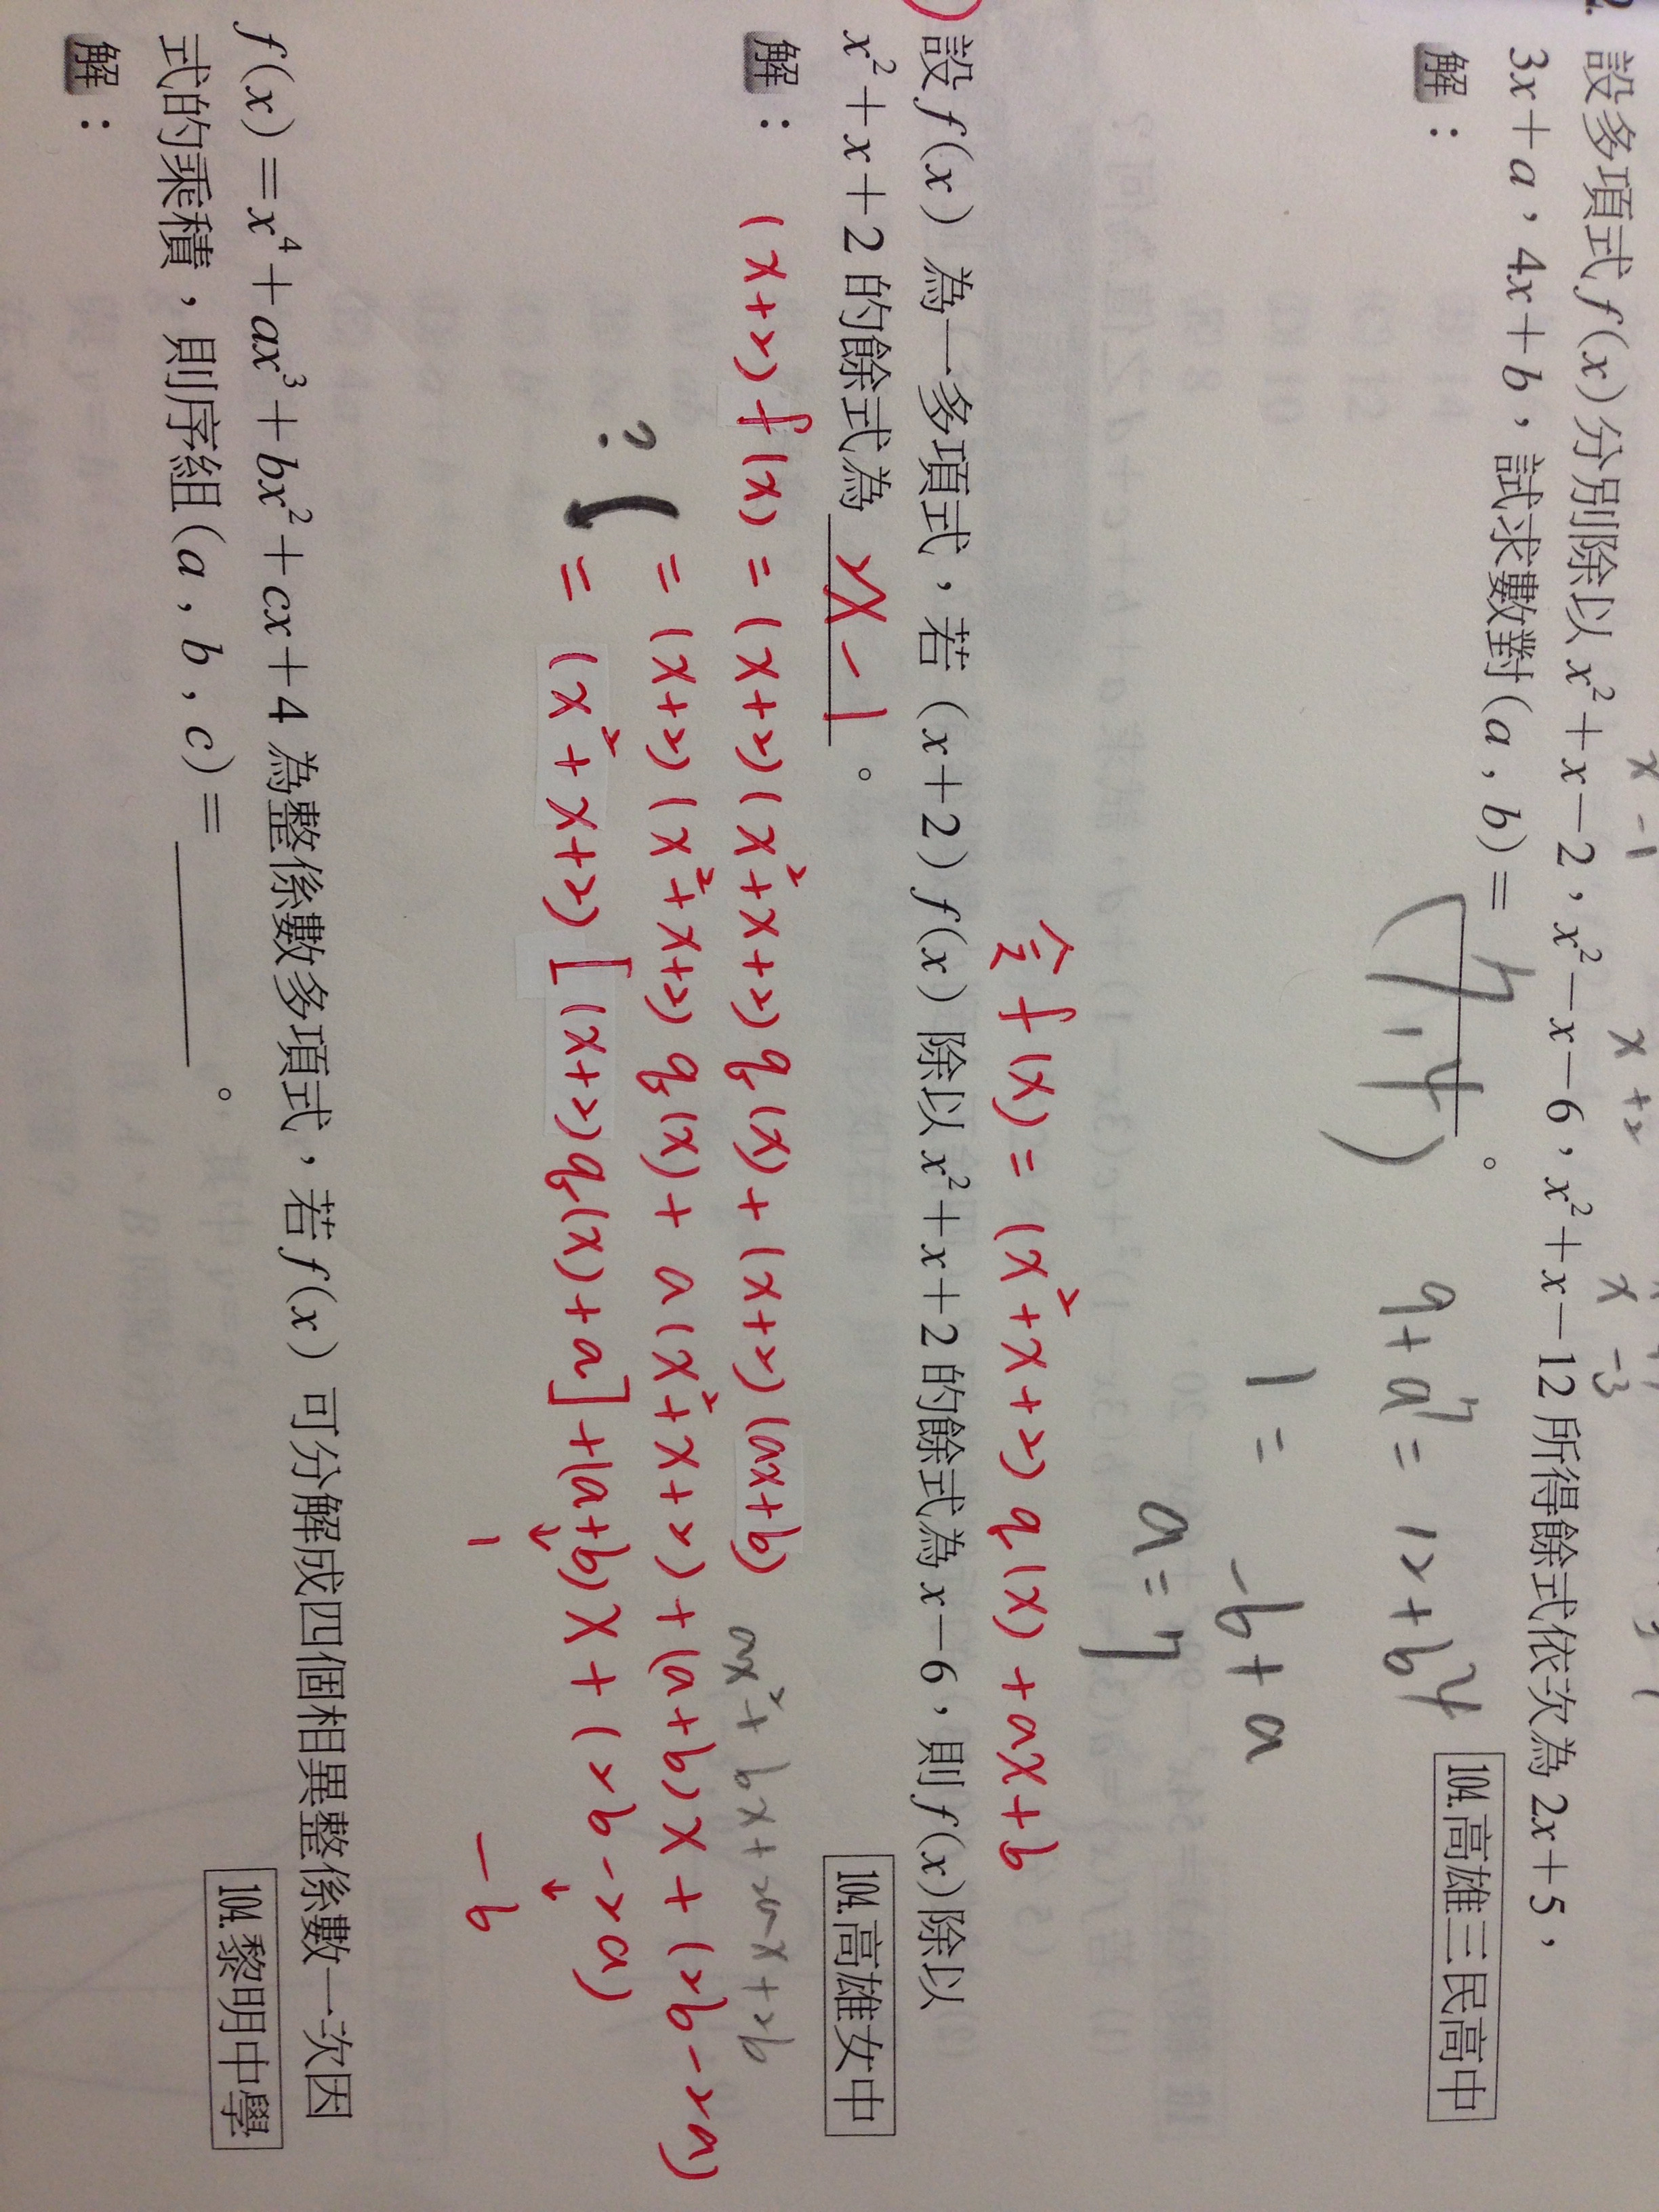 2. 設多項式 f(x) 分別除以 x²+x−2，x²−x−6，x²+x−12 所得餘式依次為 2x+5，
3x+a，4x+b，試求數對(a，b)=(7,4)。
104.高雄三民高中
x -1
x +2
x -3
解：
9+a7=12+b4
1=-b+a
a=7
設 f(x) 為一多項式，若 (x+2) f(x) 除以 x²+x+2 的餘式為 x−6，則 f(x) 除以
x²+x+2 的餘式為 2x-1。
104.高雄女中
令 f(x) = (x²+x+2) q(x) + ax+b
解：
(x+2) f(x) = (x+2)(x²+x+2) q(x) + (x+2)(ax+b)
ax²+bx+2ax+2b
= (x+2)(x²+x+2) q(x) + a(x²+x+2) + (a+b)x + (2b-2a)
?
= (x²+x+2) [(x+2)q(x)+a] + (a+b)x + (2b-2a)
1
-6
f(x)=x⁴+ax³+bx²+cx+4 為整係數多項式，若 f(x) 可分解成四個相異整係數一次因
式的乘積，則序組(a，b，c)=________。
104.黎明中學
解：